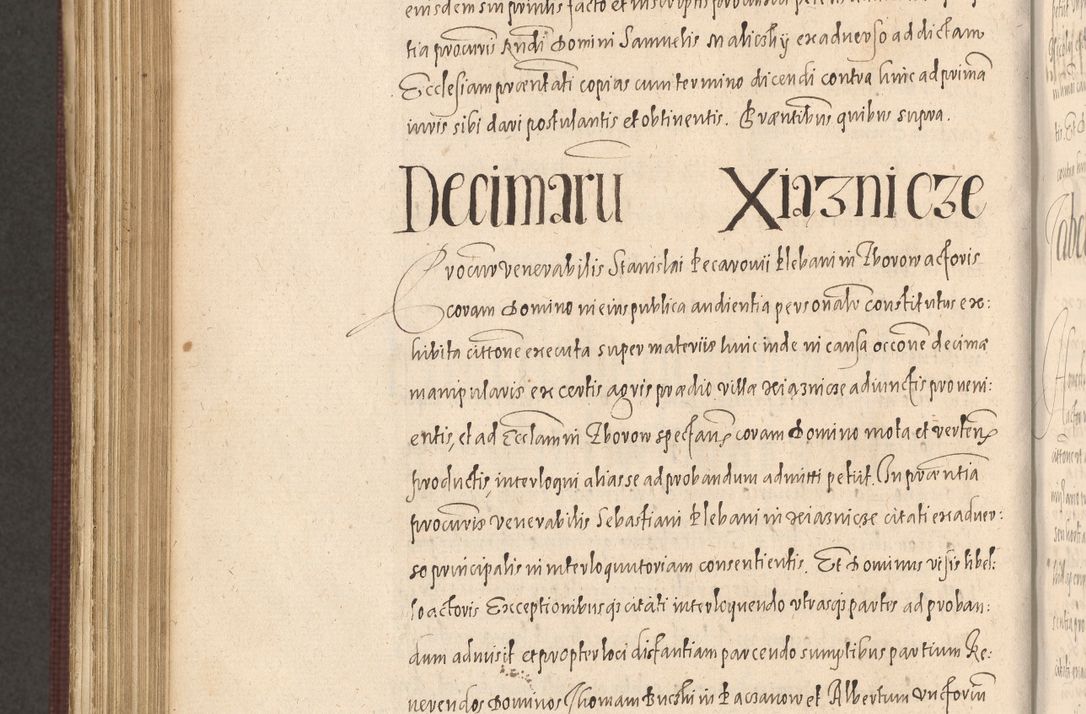 eiusdem sui prioris facto et in scriptis
tia procuris Rndi Domini Samuelis Maliczky ex aduerso ad dictam
Ecclesiam praentati copias cum termino dicendi contra hinc ad primã
iuris sibi dari postulantis et obtinentis. Praentibus quibus supra.
Decimarũ Xiaznicze
Procur venerabilis Stanislai Pecarouii Plebani in Zborow actoris
coram Domino in eius publica audientia personalr constitutus ex:
hibita cittone executa super materiis hinc inde in causa occone decimæ
manipularis ex certis agris prædio villæ Xiaznicze adiunctis proueni:
entis, et ad Ecclam in Zborow spectans coram Domino mota et verten
productis, interloqui alias se ad probandum admitti petiit. In praentia
procuris venerabilis Sebastiani Plebani in Xiaznicze citati ex aduer:
so principalis in interloquutoriam consentientis. Et Dominus visis libel:
lo actoris Exceptionibusqz citati interloquendo vtrasqz partes ad proban:
dum admisit et propter loci distantiam parcendo sumptibus partium Re:
uerendos Dominos Thomam Bucski in Paczanow et Albertum